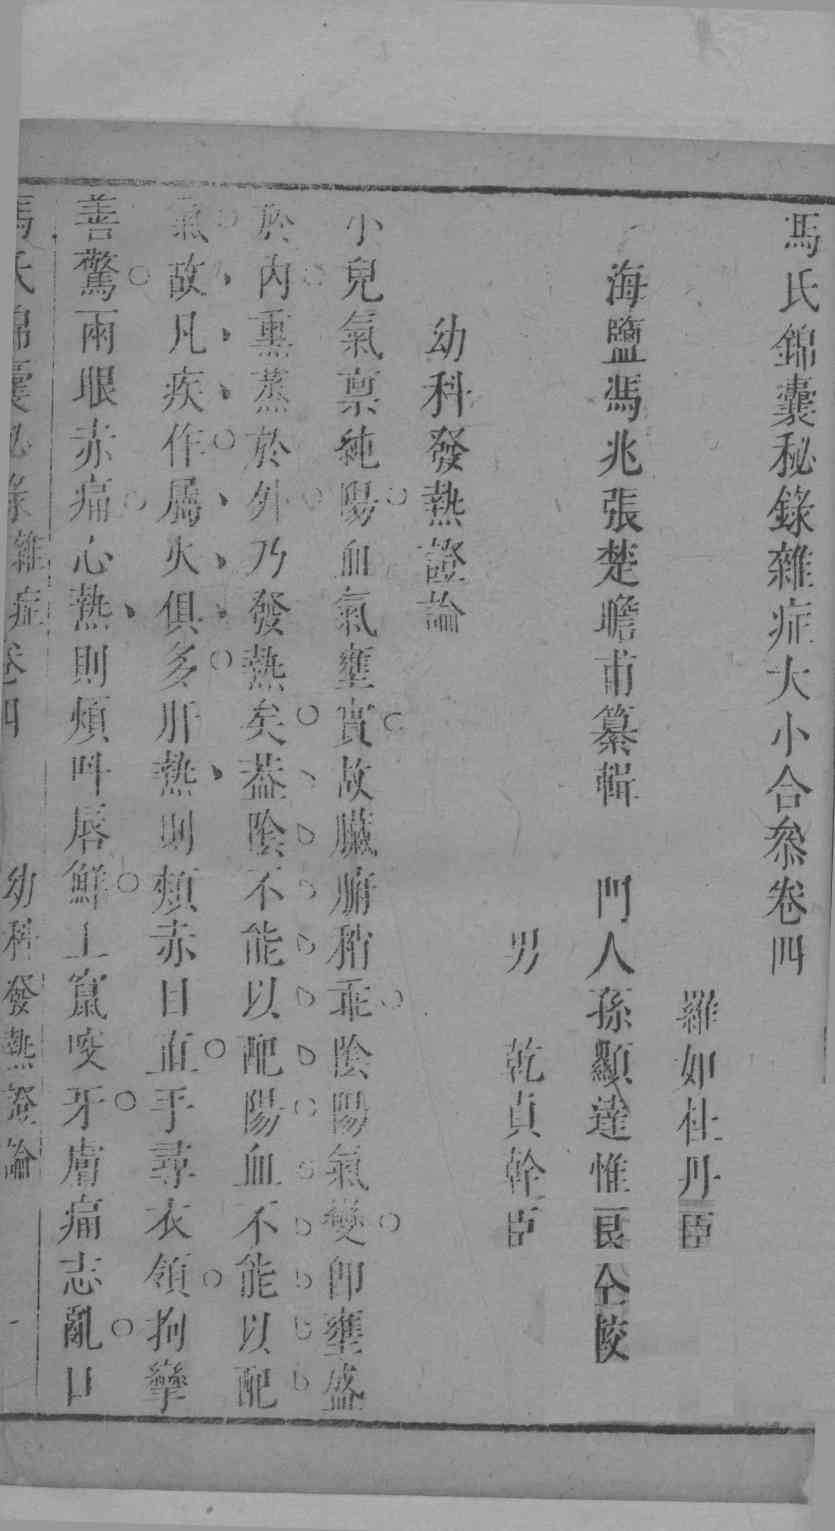 馮氏錦囊秘錄雜症大小合叅卷四
羅如桂丹臣
海鹽馮兆張楚瞻甫纂輯 門人孫顯達惟良仝校
男 乾貞幹臣
幼科發熱證論
小兒氣禀純陽血氣壅實故臟腑稍乖陰陽氣變卽壅盛
於內熏蒸於外乃發熱矣葢陰不能以配陽血不能以配
氣故凡疾作屬火俱多肝熱則頰赤目直手尋衣領拘攣
善驚兩眼赤痛心熱則煩叫唇鮮上竄咬牙膚痛志亂口
馮氏錦囊秘錄雜症卷四 幼科發熱證論 一